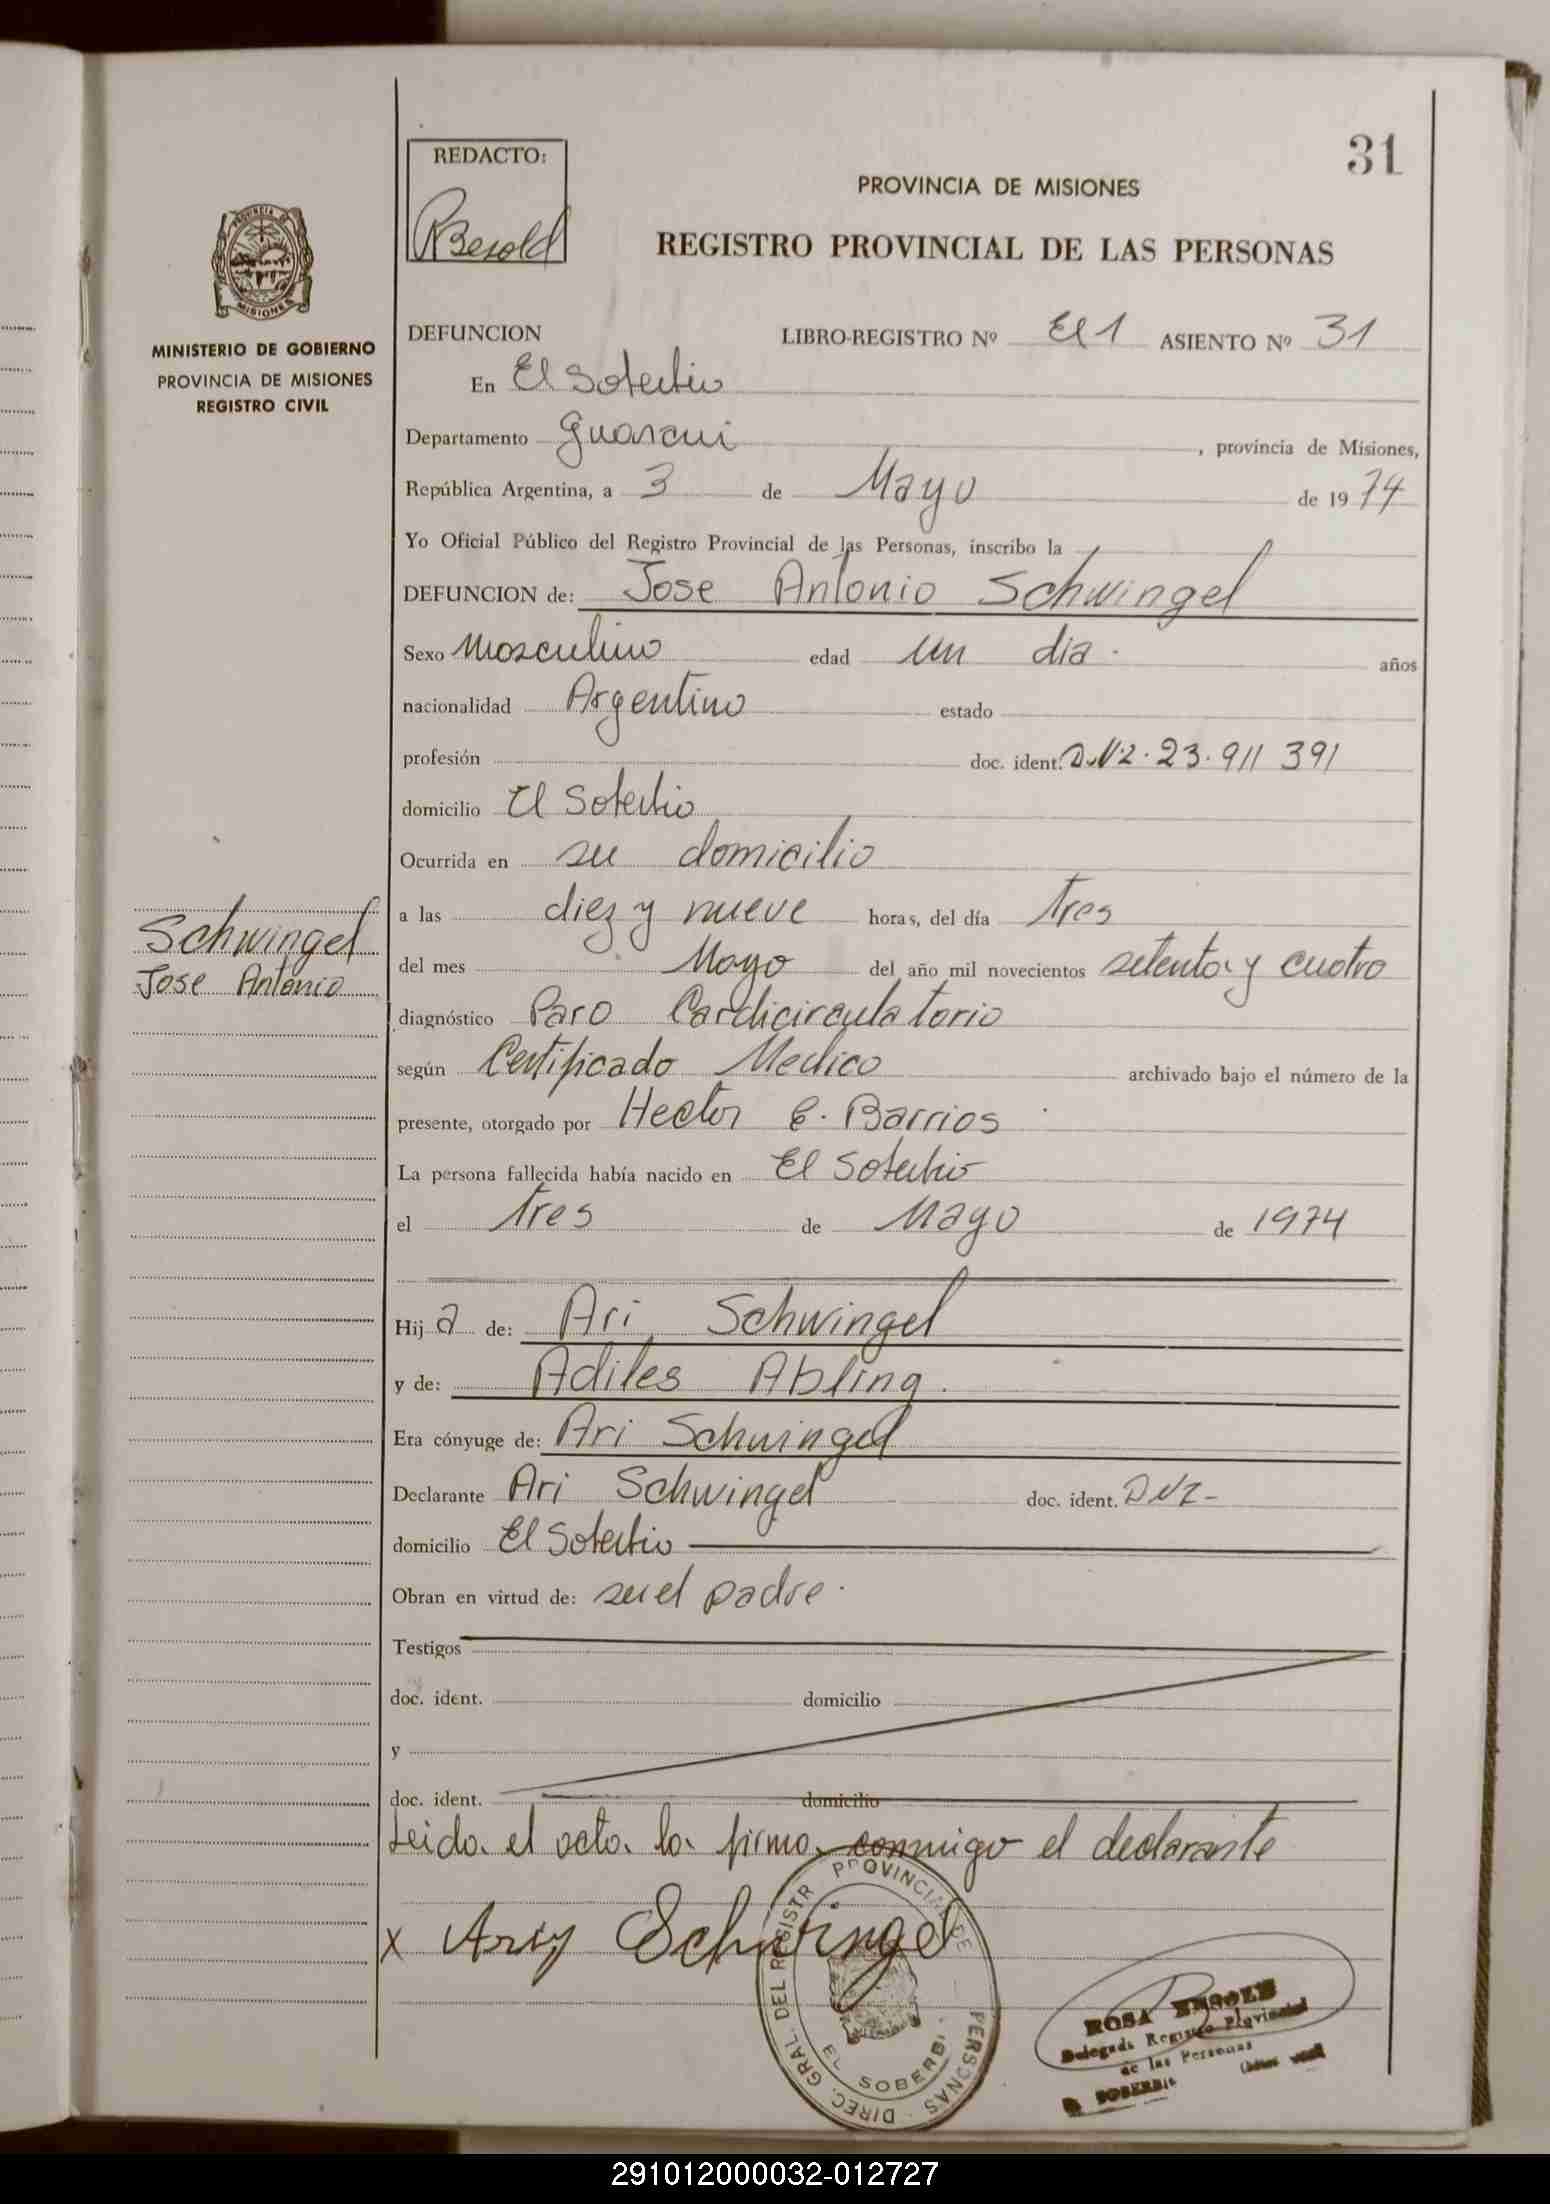 31
REDACTO:
RBesold
PROVINCIA DE MISIONES
REGISTRO PROVINCIAL DE LAS PERSONAS
PROVINCIA DE
MISIONES
MINISTERIO DE GOBIERNO
PROVINCIA DE MISIONES
REGISTRO CIVIL
DEFUNCION LIBRO-REGISTRO Nº El 1 ASIENTO Nº 31
En El Soberbio
Departamento Guarani, provincia de Misiones,
República Argentina, a 3 de Mayo de 1974
Yo Oficial Público del Registro Provincial de las Personas, inscribo la
DEFUNCION de: Jose Antonio Schwingel
Sexo Masculino edad un dia. años
nacionalidad Argentino estado
profesión doc. ident. 23.911 391
domicilio El Soberbio
Ocurrida en su domicilio
a las diez y nueve horas, del día tres
del mes Mayo del año mil novecientos setenta y cuatro
diagnóstico Paro Cardicirculatorio
según Certificado Medico archivado bajo el número de la
presente, otorgado por Hector E. Barrios
La persona fallecida había nacido en El Soberbio
el tres de Mayo de 1974
Schwingel
Jose Antonio
Hij a de: Ari Schwingel
y de: Adiles Abling.
Era cónyuge de: Ari Schwingel
Declarante Ari Schwingel doc. ident.
domicilio El Soberbio
Obran en virtud de: ser el padre.
Testigos
doc. ident. domicilio
y
doc. ident. domicilio
Leida el acta la firma conmigo el declarante
x Ariy Schwingel
DIREC. GRAL. DEL REGISTR PROVINCIAL DE PERSONAS
EL SOBERBI
ROSA BESOLD
Delegada Registro Provincial
de las Personas
SOBERBIO
291012000032-012727